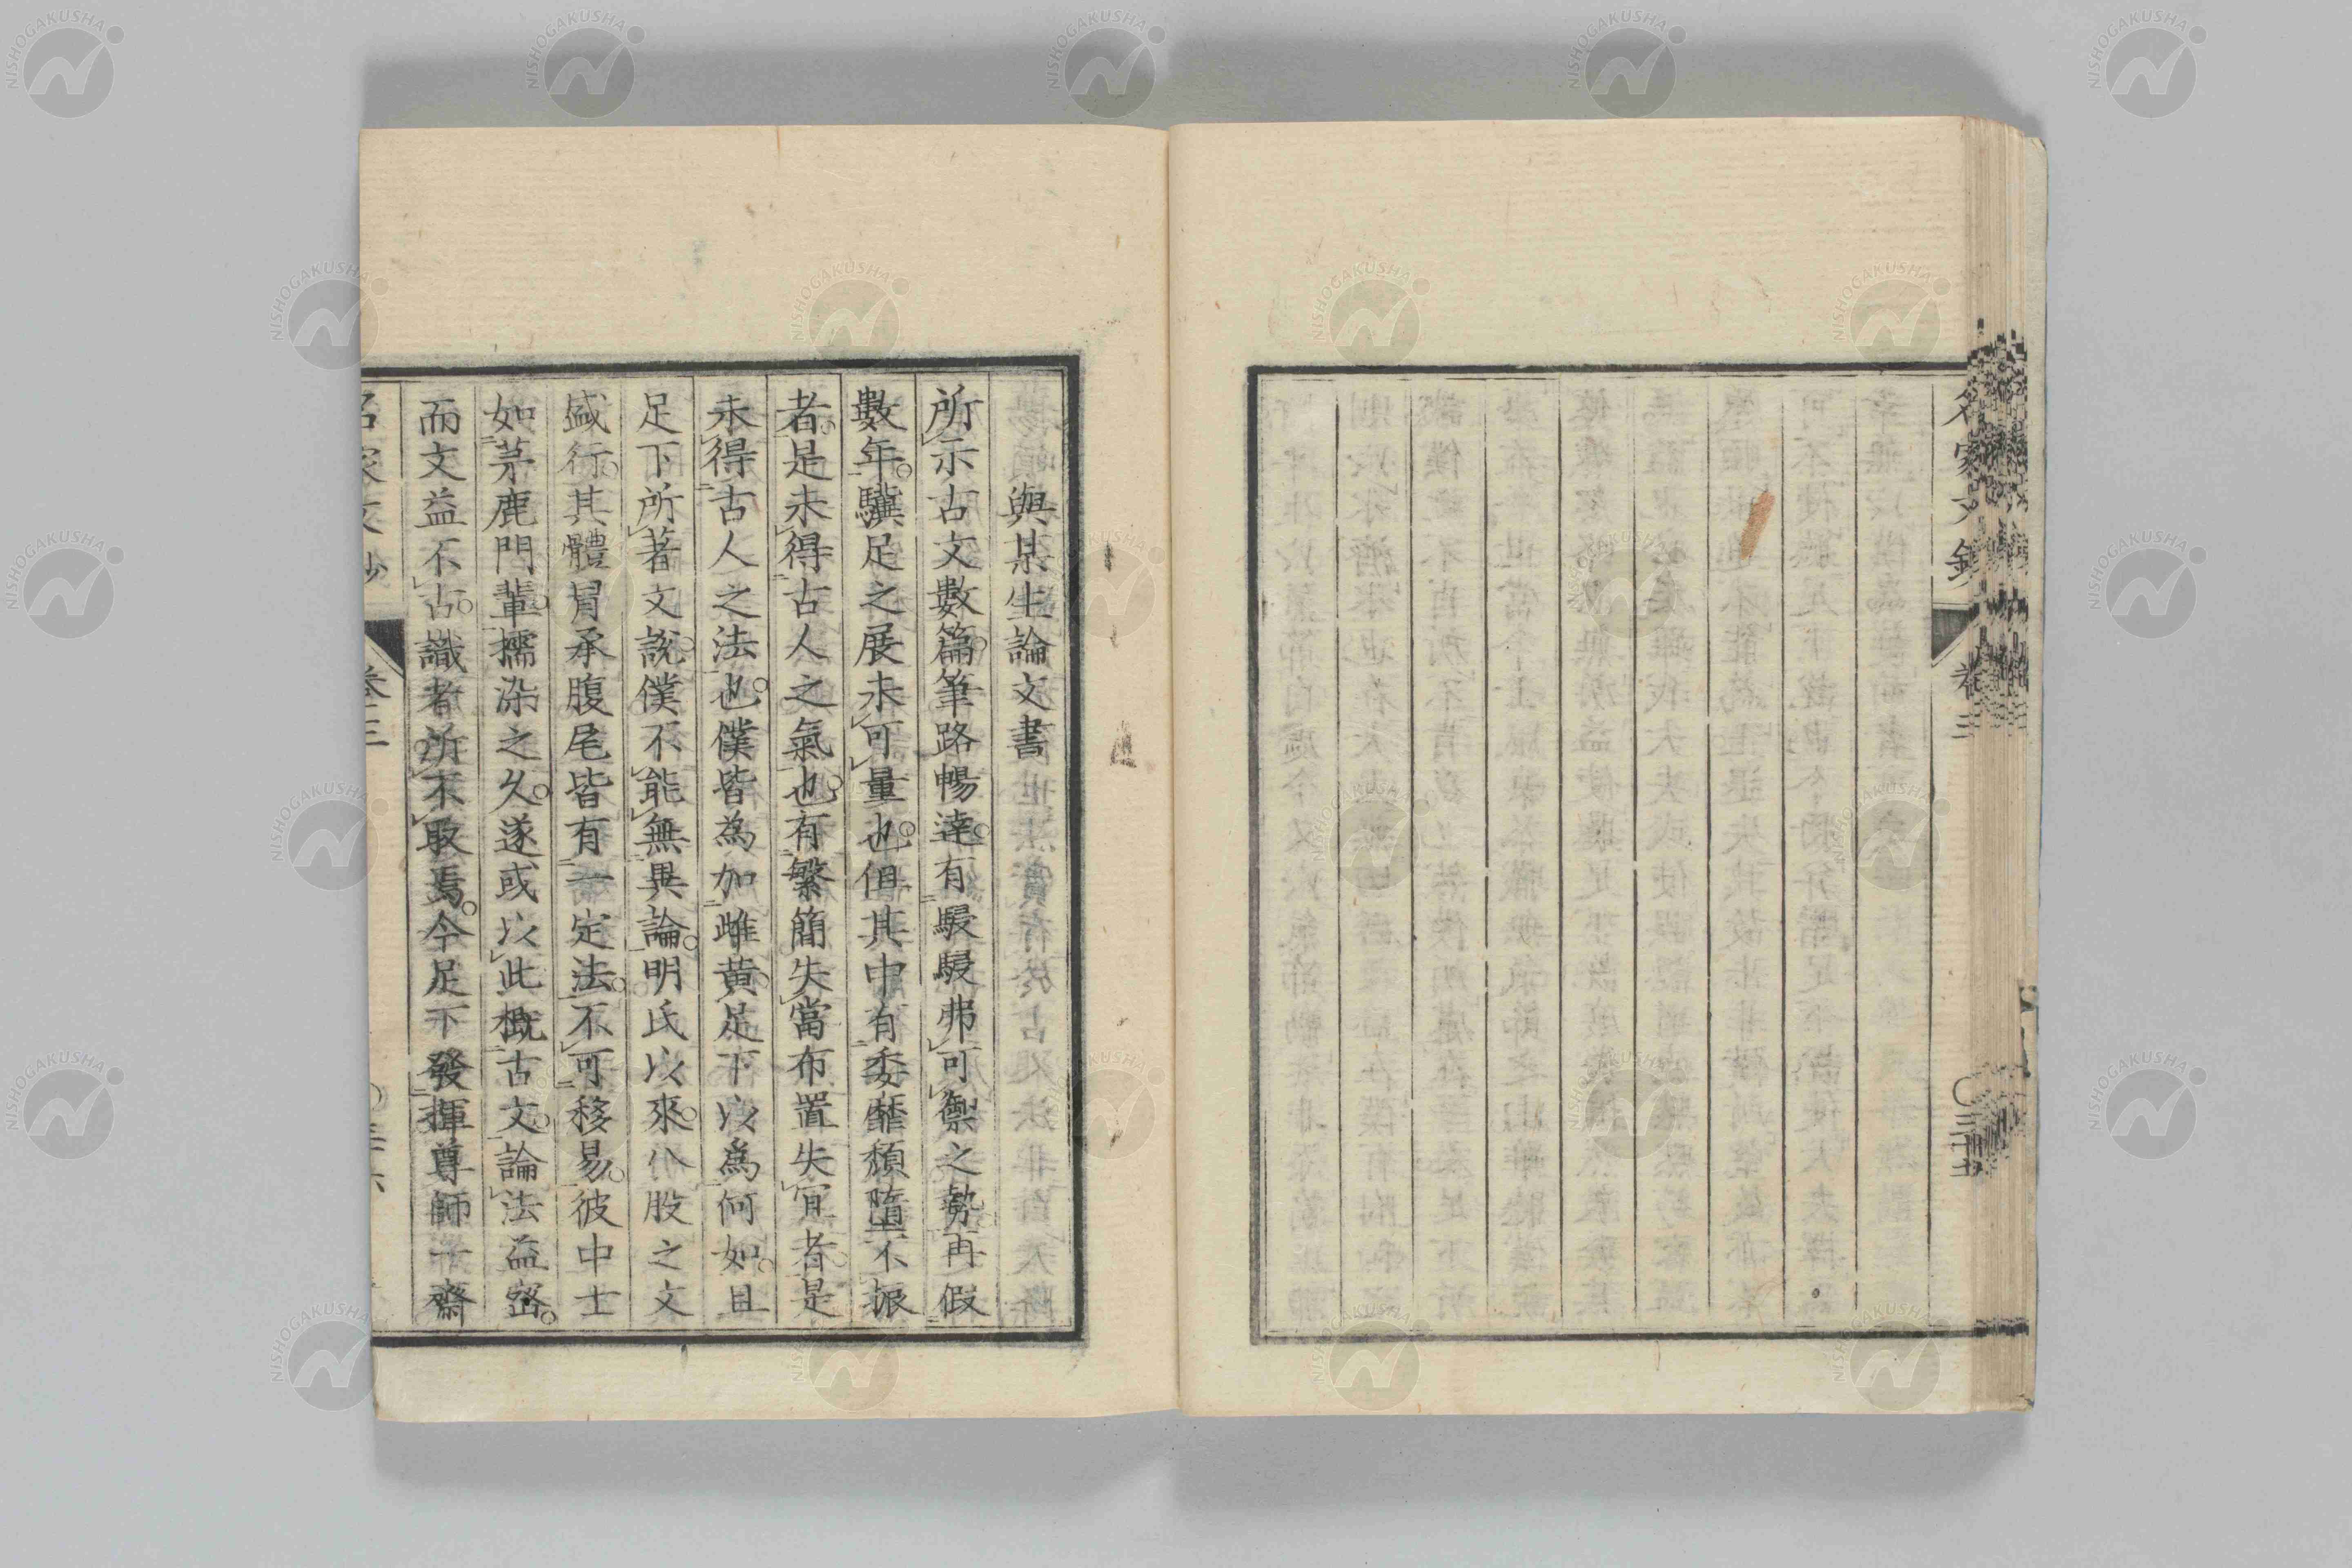 名家文鈔
卷三
〇三十五
與某生論文書
所示古文數篇。筆路暢達。有駸駸弗可禦之勢再假
數年。驥足之展未可量也。但其中有委靡頽墮不振
者。是未得古人之氣也。有繁簡失當布置失宜者是
未得古人之法也。僕皆為加雌黄足下以為何如。且
足下所著文說。僕不能無異論。明氏以來。八股之文
盛行。其體冐承腹尾皆有一定法。不可移易。彼中士
如茅鹿門輩。擩染之久。遂或以此概古文。論法益密。
而文益不古。識者所不取焉。今足下發揮尊師一齋
名家文鈔
卷三
NISHOGAKUSHA